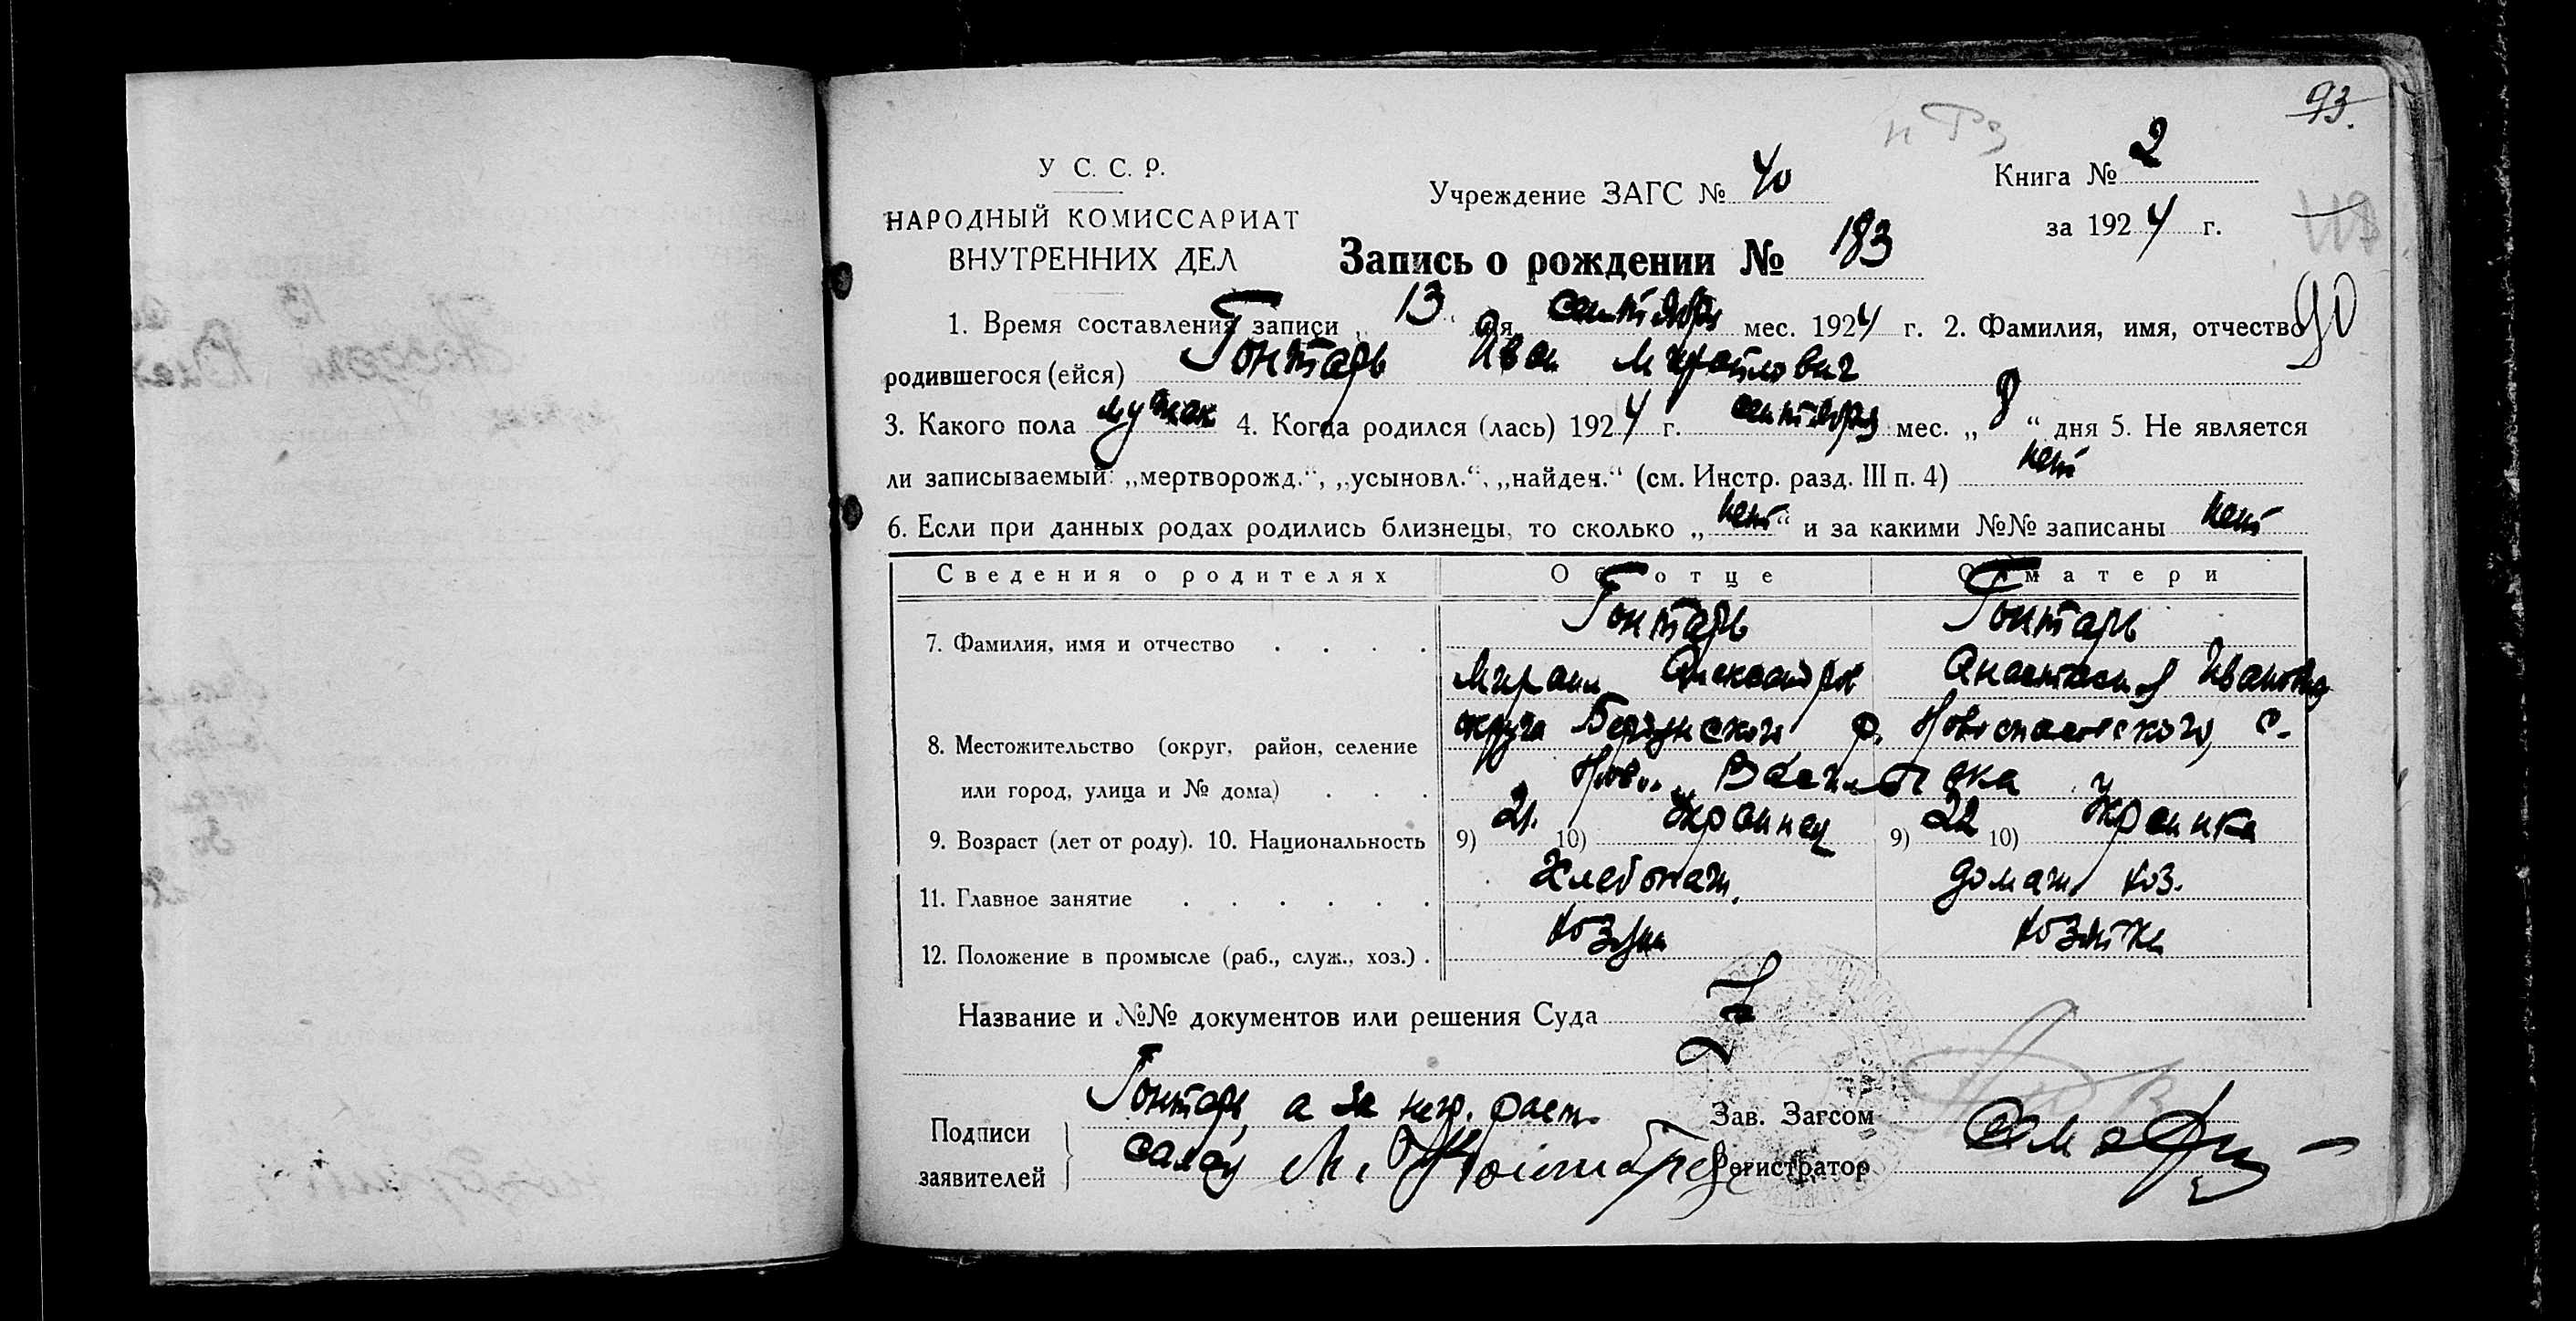 93.
У С. С. Р.
НАРОДНЫЙ КОМИССАРИАТ
ВНУТРЕННИХ ДЕЛ
Учреждение ЗАГС № 40
Книга № 2
за 1924 г.
Запись о рождении № 183
90
1. Время составления записи „ 13 “ дня сентября мес. 1924 г. 2. Фамилия, имя, отчество
родившегося (ейся) Гонтарь Иван
3. Какого пола мужск 4. Когда родился (лась) 1924 г. сентября мес. „ 8 “ дня 5. Не является
ли записываемый: „мертворожд.“, „усыновл.“, „найден.“ (см. Инстр. разд. III п. 4) нет
6. Если при данных родах родились близнецы, то сколько „ нет “ и за какими №№ записаны нет
Сведения о родителях Об отце О матери
7. Фамилия, имя и отчество . . . . Гонтарь Гонтарь
Александров Анастасия Ивановна
8. Местожительство (округ, район, селение округа р. Новоспасовского, с.
или город, улица и № дома) . . . Ново Васильевка
9. Возраст (лет от роду). 10. Национальность 9) 21. 10) Украинец 9) 22 10) Украинка
11. Главное занятие . . . . . . Хлебопаш. домаш. хоз.
12. Положение в промысле (раб., служ., хоз.) . хозяин хозяйка
Название и №№ документов или решения Суда
Подписи
заявителей
Гонтарь, а за негр. расп.
М.
Зав. Загсом
Регистратор